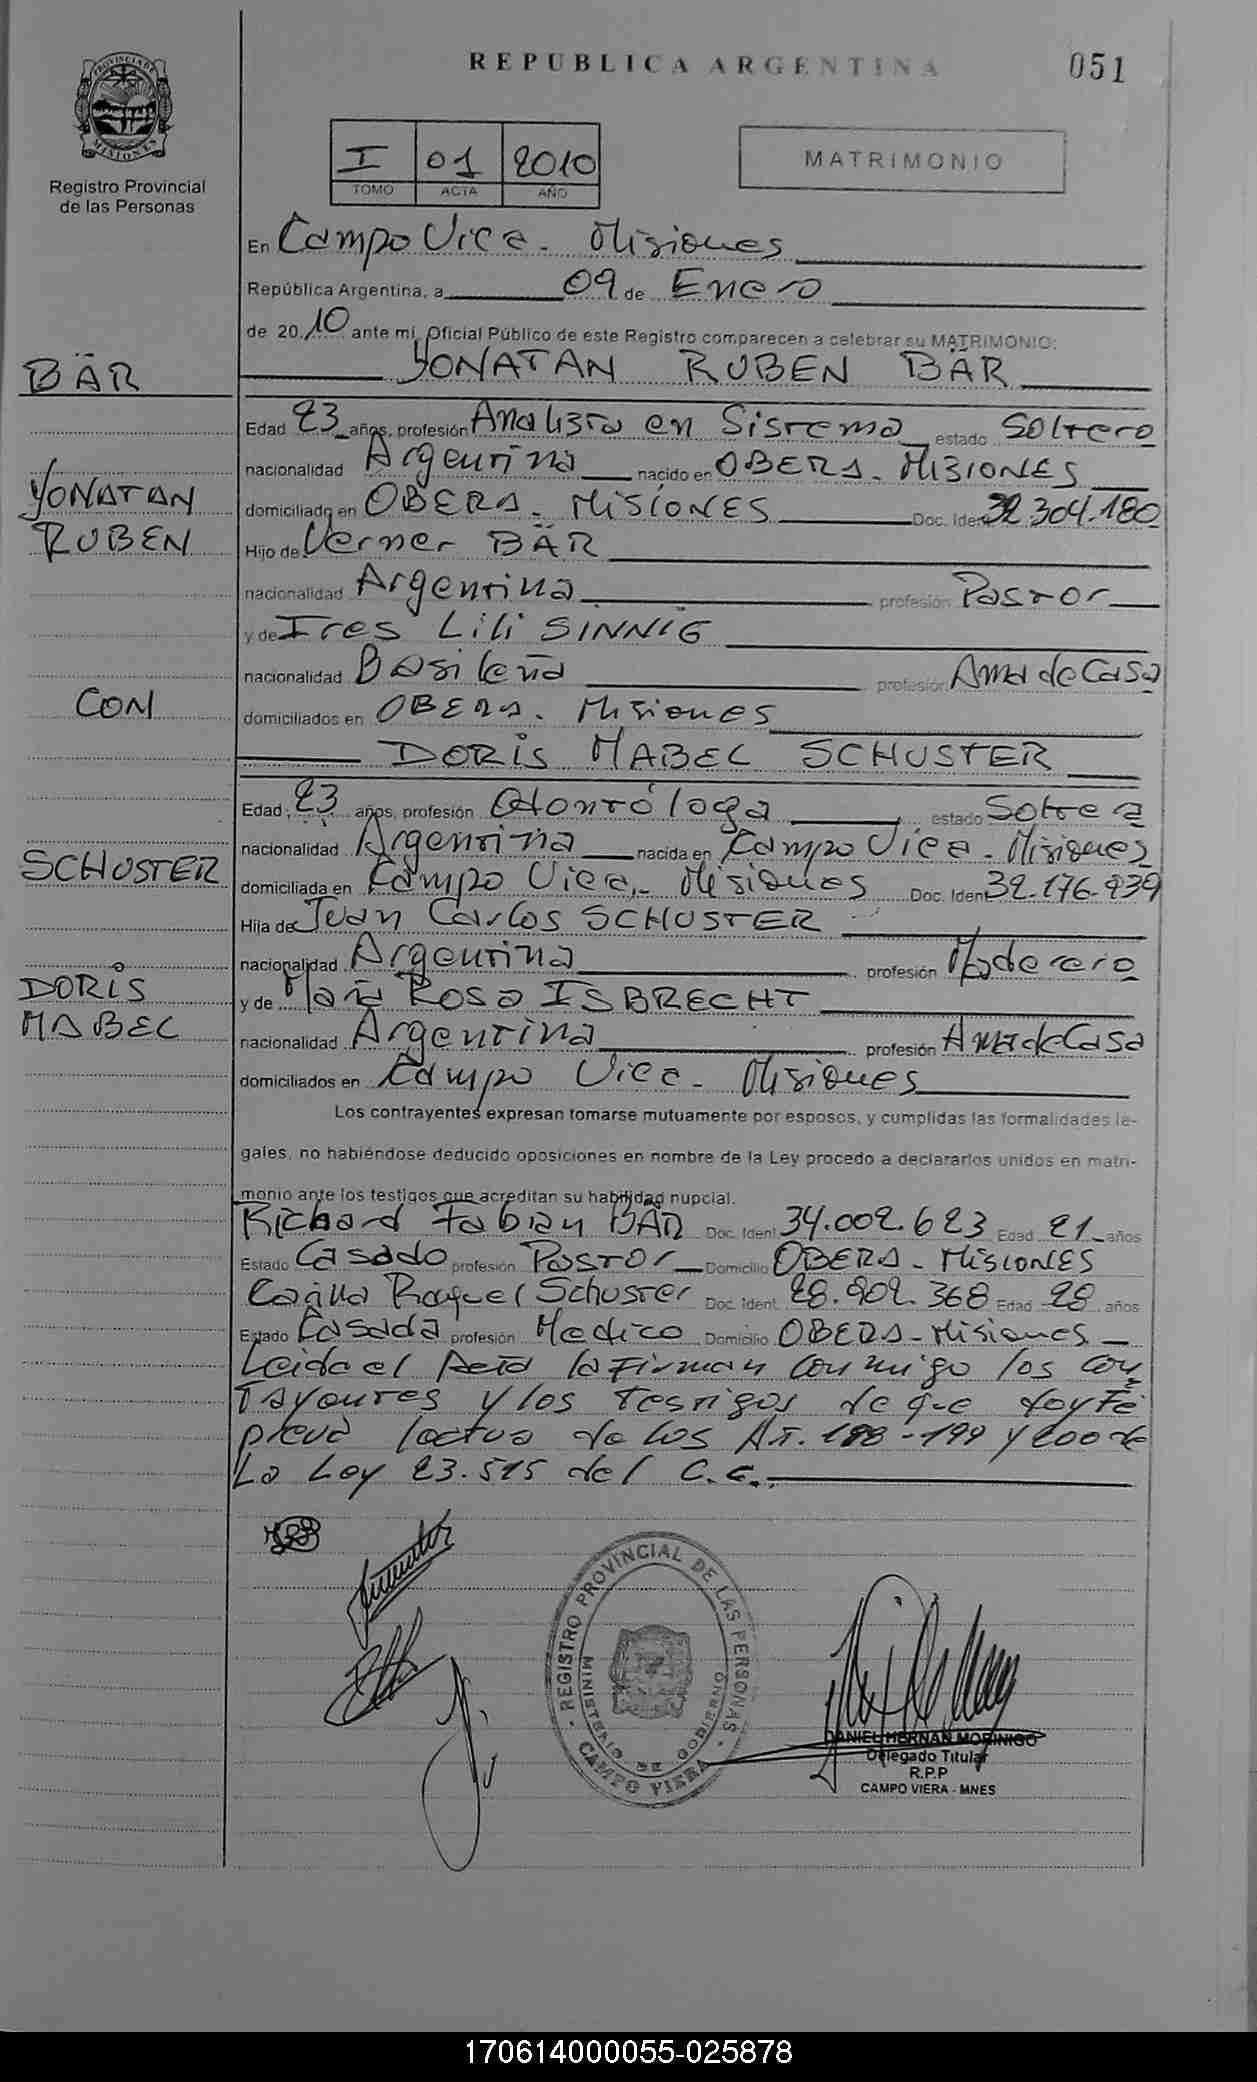 REPUBLICA ARGENTINA
051
PROVINCIA DE MISIONES
Registro Provincial
de las Personas
I 01 2010
TOMO ACTA AÑO
MATRIMONIO
En Campo Viera - Misiones
República Argentina, a 09 de Enero
de 20 10 ante mi, Oficial Público de este Registro comparecen a celebrar su MATRIMONIO:
BÄR
YONATAN RUBEN BÄR
Edad 23 años, profesión Analista en Sistema estado Soltero
nacionalidad Argentina nacido en OBERA - MISIONES
YONATAN
domiciliado en OBERA - MISIONES Doc. Ident. 32.304.180
RUBEN
Hijo de Verner BÄR
nacionalidad Argentina profesión Pastor
y de Ires Lili SINNIG
nacionalidad Basileña profesión Ama de Casa
CON
domiciliados en OBERA - Misiones
DORIS MABEL SCHUSTER
Edad 23 años, profesión Odontóloga estado Soltera
nacionalidad Argentina nacida en Campo Viera - Misiones
SCHUSTER
domiciliada en Campo Viera - Misiones Doc. Ident. 32.176.939
Hija de Juan Carlos SCHUSTER
nacionalidad Argentina profesión Maderero
DORIS
y de Maria Rosa ISBRECHT
MABEL
nacionalidad Argentina profesión Ama de Casa
domiciliados en Campo Viera - Misiones
Los contrayentes expresan tomarse mutuamente por esposos, y cumplidas las formalidades le-
gales, no habiéndose deducido oposiciones en nombre de la Ley procedo a declararlos unidos en matri-
monio ante los testigos que acreditan su habilidad nupcial.
Richard Fabian BÄR Doc. Ident. 34.002.623 Edad 21 años
Estado Casado profesión Pastor Domicilio OBERA - MISIONES
Carina Raquel Schuster Doc. Ident. 28.902.368 Edad 28 años
Estado Casada profesión Medico Domicilio OBERA - Misiones
Leida el Acta la firman conmigo los con
trayentes y los testigos de que doy Fé
previa lectura de los Art. 198-199 y 200 de
La Ley 23.515 del C.C.
REGISTRO PROVINCIAL DE LAS PERSONAS
MINISTERIO DE GOBIERNO
CAMPO VIERA
DANIEL HERNAN MORINIGO
Delegado Titular
R.P.P
CAMPO VIERA - MNES
170614000055-025878